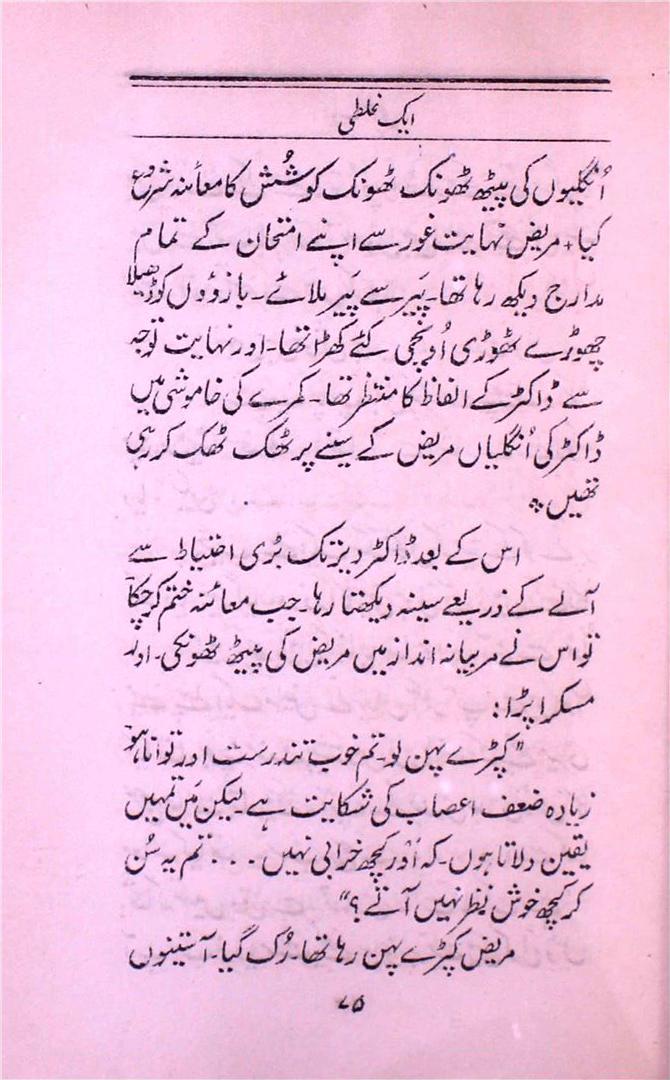 ایک غلطی
اُنگلیوں کی پیٹھ ٹھونک ٹھونک کو شُش کا معائنہ شروع
کیا، مریض نہایت غور سے اپنے امتحان کے تمام
مدارج دیکھ رہا تھا۔ پَیر سے پَیر ملائے۔ بازوؤں کو ڈھیلا
چھوڑے ٹھوڑی اُونچی کئے کھڑا تھا۔ اور نہایت توجہ
سے ڈاکٹر کے الفاظ کا منتظر تھا۔ کمرے کی خاموشی میں
ڈاکٹر کی اُنگلیاں مریض کے سینے پر ٹھک ٹھک کر رہی
تھیں ؞
اس کے بعد ڈاکٹر دیر تک بڑی احتیاط سے
آلے کے ذریعے سینہ دیکھتا رہا۔ جب معائنہ ختم کر چکا
تو اس نے مربیانہ انداز میں مریض کی پیٹھ ٹھونکی۔ اور
مسکرا پڑا:
"کپڑے پہن لو۔ تم خوب تندرست اور توانا ہو
زیادہ ضعف اعصاب کی شکایت ہے لیکن مَیں تمہیں
یقین دلاتا ہوں۔ کہ اَور کچھ خرابی نہیں . . . تم یہ سُن
کر کچھ خوش نظر نہیں آتے؟"
مریض کپڑے پہن رہا تھا۔ رُک گیا۔ آستینوں
۷۵